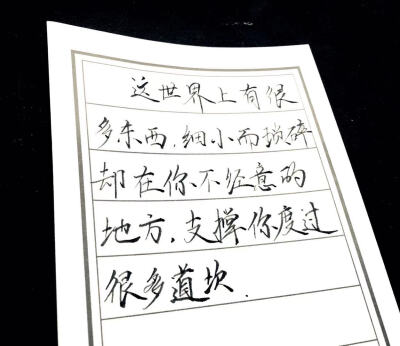 这世界上有很
多东西,细小而琐碎
却在你不经意的
地方,支撑你度过
很多道坎.